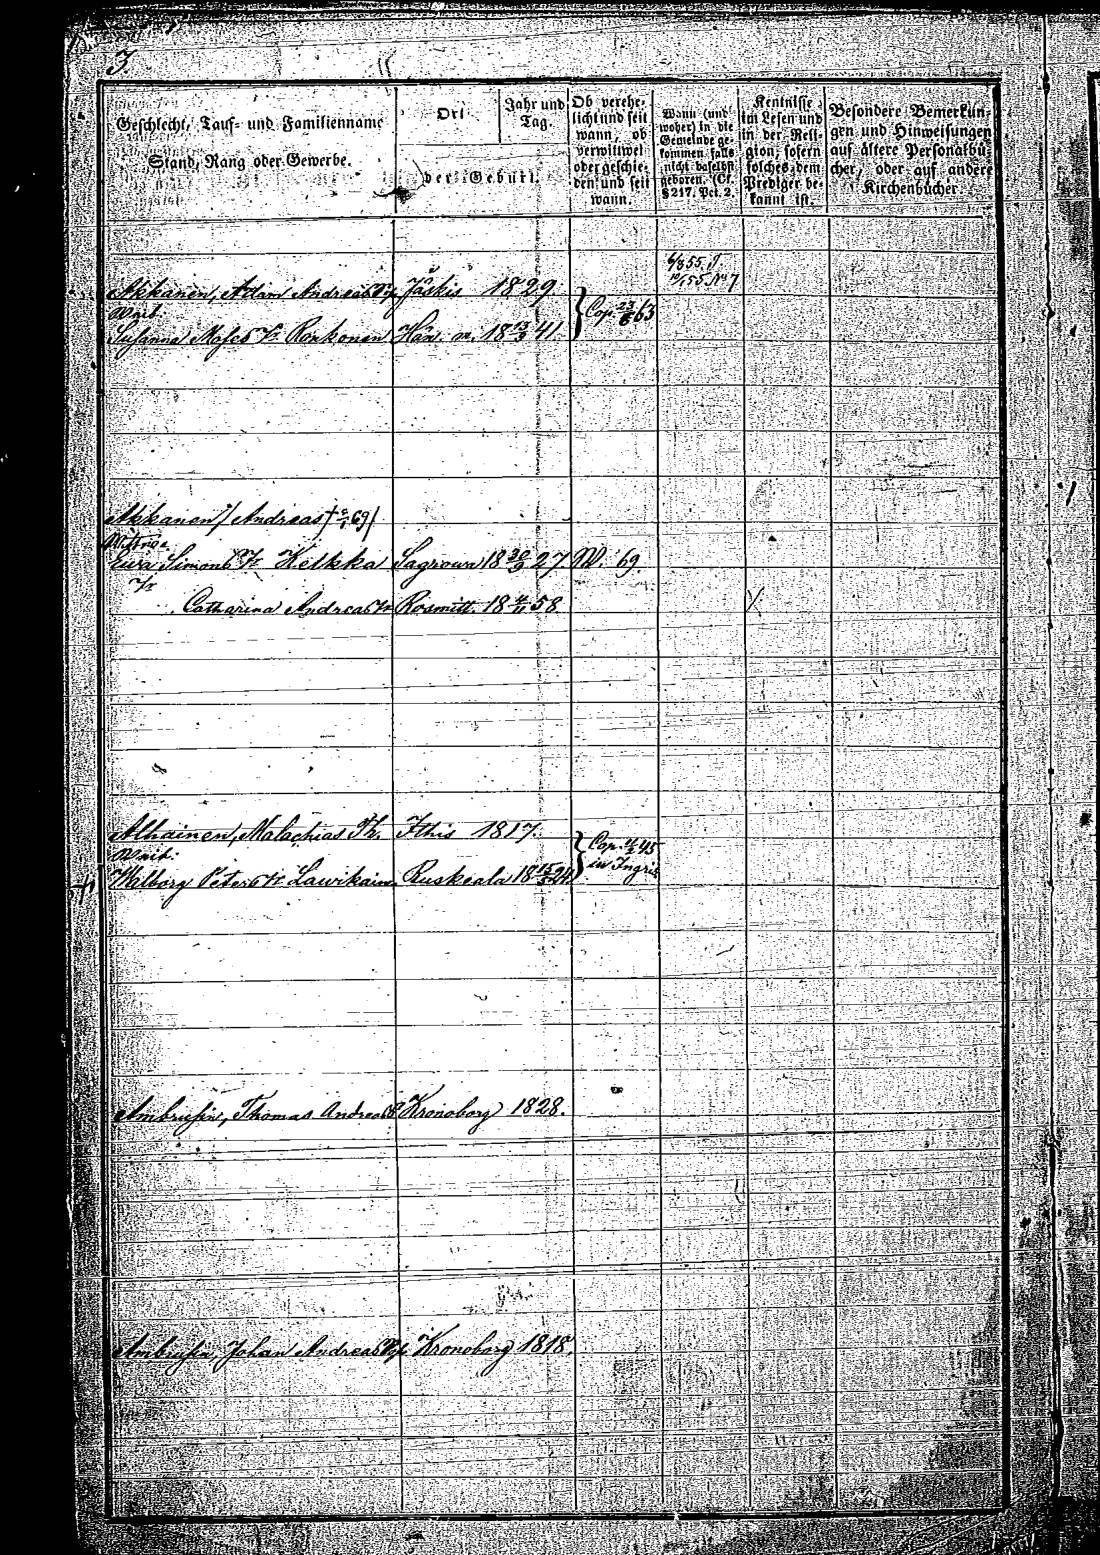 3
Geschlecht, Tauf- und Familienname
Stand, Rang oder Gewerbe.
Ort
Jahr und Tag
der Geburt.
Ob verehe-
licht und seit
wann, ob
verwittwet
oder geschie-
den und seit
wann.
Wann (und
woher) in die
Gemeinde ge-
kommen falls
nicht daselbst
geboren. (Cf.
§ 217. Pct. 2.
Kentnisse
im Lesen und
in der Reli-
gion, sofern
solches dem
Prediger be-
kannt ist.
Besondere Bemerkun-
gen und Hinweisungen
auf ältere Personalbü-
cher, oder auf andere
Kirchenbücher
Akkanen, Adam Andreas Jäskis 1829.
Weib:
Susanna Moses Ronkonen 18 13/3 41.
Cop. 23/6 63
Akkanen Andreas 69
Wittwe
Ewa Simons Kelkka Sagrowa 18 27 W. 69.
Catharina Andreas Rosmitt. 18 4/11 58
Alhainen, Malachias Th. Ithis 1817.
Weib:
Walborg Peters Lawikain Ruskeala 18 24
Cop. 45
in Ingris
Ambrusin, Thomas Andreas Kronoborg 1828.
Ambrusin Johan Andreas Kronoborg 1818.